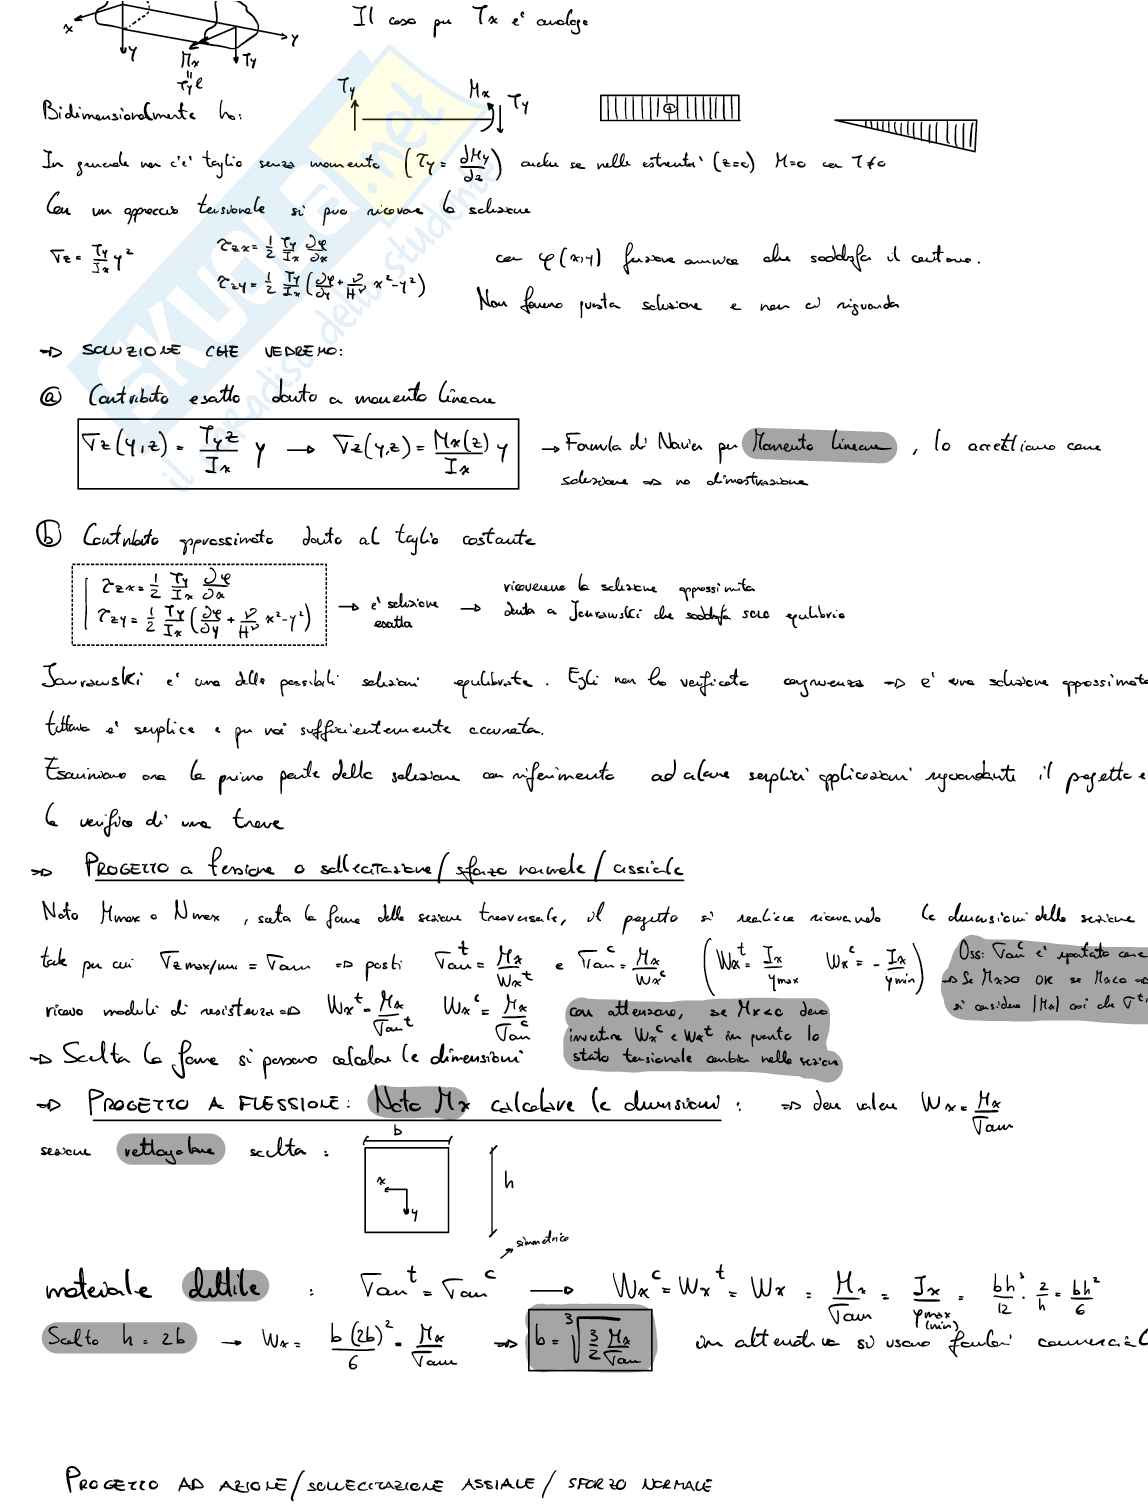 Il caso per Tx e' analogo
x y y Mx Ty
Ty l
Bidimensionalmente ho:
Ty Mx Ty
In generale non c'e' taglio senza momento (Ty = dMy/dz) anche se nelle estremita' (z=0) M=0 con T≠0
Con un approccio tensionale si puo ricavare la soluzione
σz = Ty/Ix y²
τzx = 1/2 Ty/Ix ∂φ/∂x
τzy = 1/2 Ty/Ix (∂φ/∂y + ν/1+ν x² - y²)
con φ(x,y) funzione armonica che soddisfa il contorno.
Non faremo questa soluzione e non ci riguarda
⇒ SOLUZIONE CHE VEDREMO:
ⓐ Contributo esatto dovuto a momento lineare
σz(y,z) = Ty z/Ix y → σz(y,z) = Mx(z)/Ix y → Formula di Navier per Momento lineare, lo accettiamo come
soluzione ⇒ no dimostrazione
ⓑ Contributo approssimato dovuto al taglio costante
τzx = 1/2 Ty/Ix ∂φ/∂x
τzy = 1/2 Ty/Ix (∂φ/∂y + ν/1+ν x² - y²)
→ e' soluzione esatta →
ricaveremo la soluzione approssimata
dovuta a Jourawski che soddisfa solo equilibrio
Jourawski e' una delle possibili soluzioni equilibrate. Egli non ha verificato congruenza ⇒ e' una soluzione approssimata
tuttavia e' semplice e per noi sufficientemente accurata.
Esaminiamo ora la prima parte della soluzione con riferimento ad alcune semplici applicazioni riguardanti il progetto e
la verifica di una trave
⇒ PROGETTO a flessione o sollecitazione/sforzo normale/assiale
Noto Mmax o Nmax, scelta la forma della sezione trasversale, il progetto si realizza ricavando le dimensioni della sezione
tale per cui σz max/min = σam ⇒ posti σam^t = Mx/Wx^t e σam^c = Mx/Wx^c (Wx^t = Ix/ymax Wx^c = -Ix/ymin)
Oss: σam^c e' riportato come
→ Se Mx>0 OK se Mx<0 ⇒
si considera |Mx| cosi che σ^t
ricavo moduli di resistenza ⇒ Wx^t = Mx/σam^t Wx^c = Mx/σam^c
con attenzione, se Mx<0 devo
invertire Wx^c e Wx^t in quanto lo
stato tensionale cambia nella sezione
⇒ Scelta la forma si possono calcolare le dimensioni
⇒ PROGETTO A FLESSIONE: Noto Mx calcolare le dimensioni: ⇒ deve valere Wx = Mx/σam
sezione rettangolare scelta:
b
x y h
simmetrico
materiale duttile: σam^t = σam^c → Wx^c = Wx^t = Wx = Mx/σam = Ix/ymax(min) = bh³/12 · 2/h = bh²/6
Scelto h = 2b → Wx = b(2b)²/6 = Mx/σam ⇒ b = ³√(3/2 Mx/σam) in alternativa si usano
PROGETTO AD AZIONE/SOLLECITAZIONE ASSIALE/SFORZO NORMALE
SKUOLA.net
il paradiso dello studente